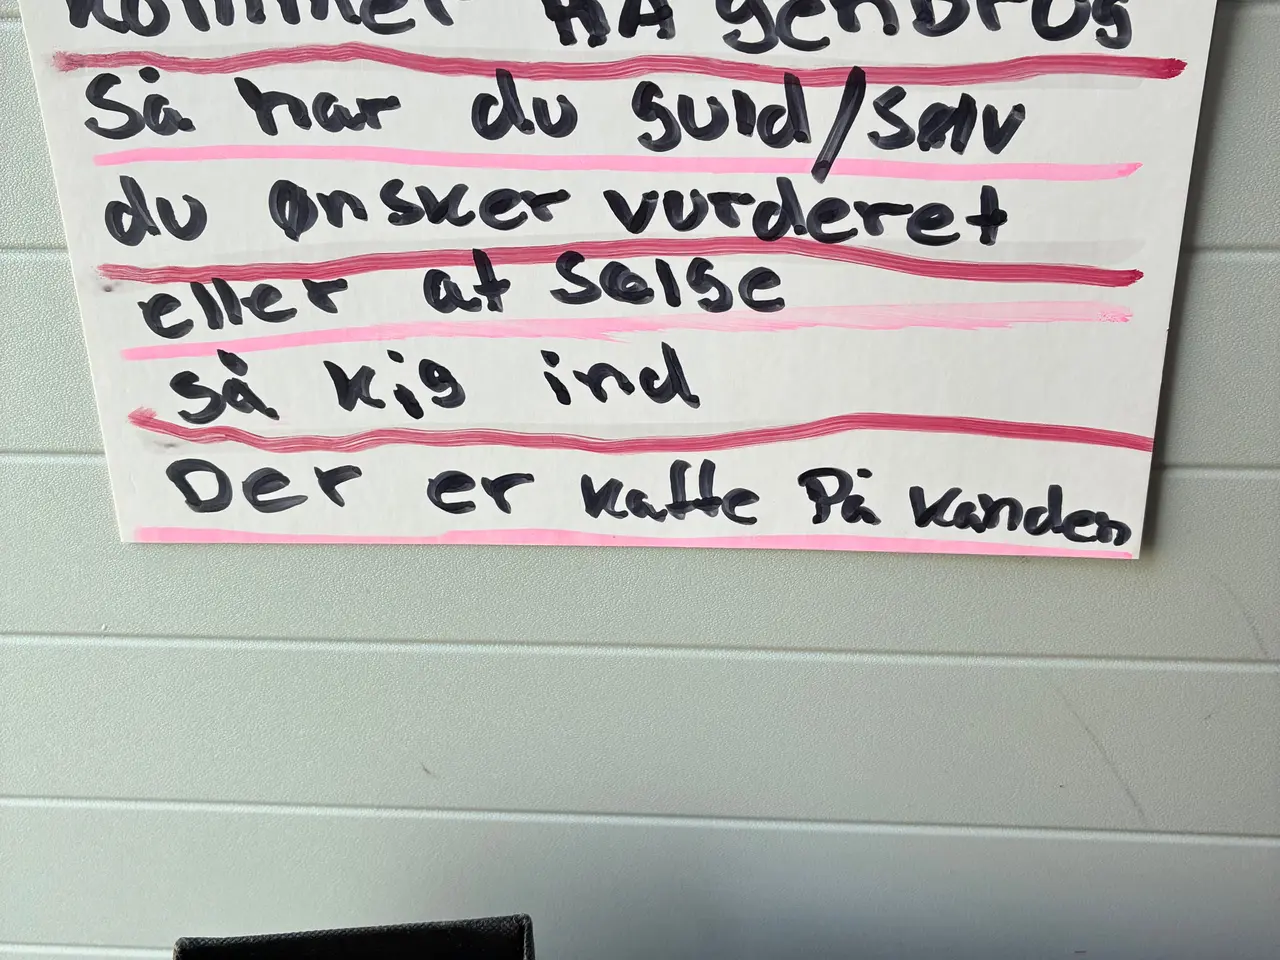 kommer HA genbrug
Så har du guld/sølv
du ønsker vurderet
eller at sælge
så kig ind
Der er kaffe På kanden